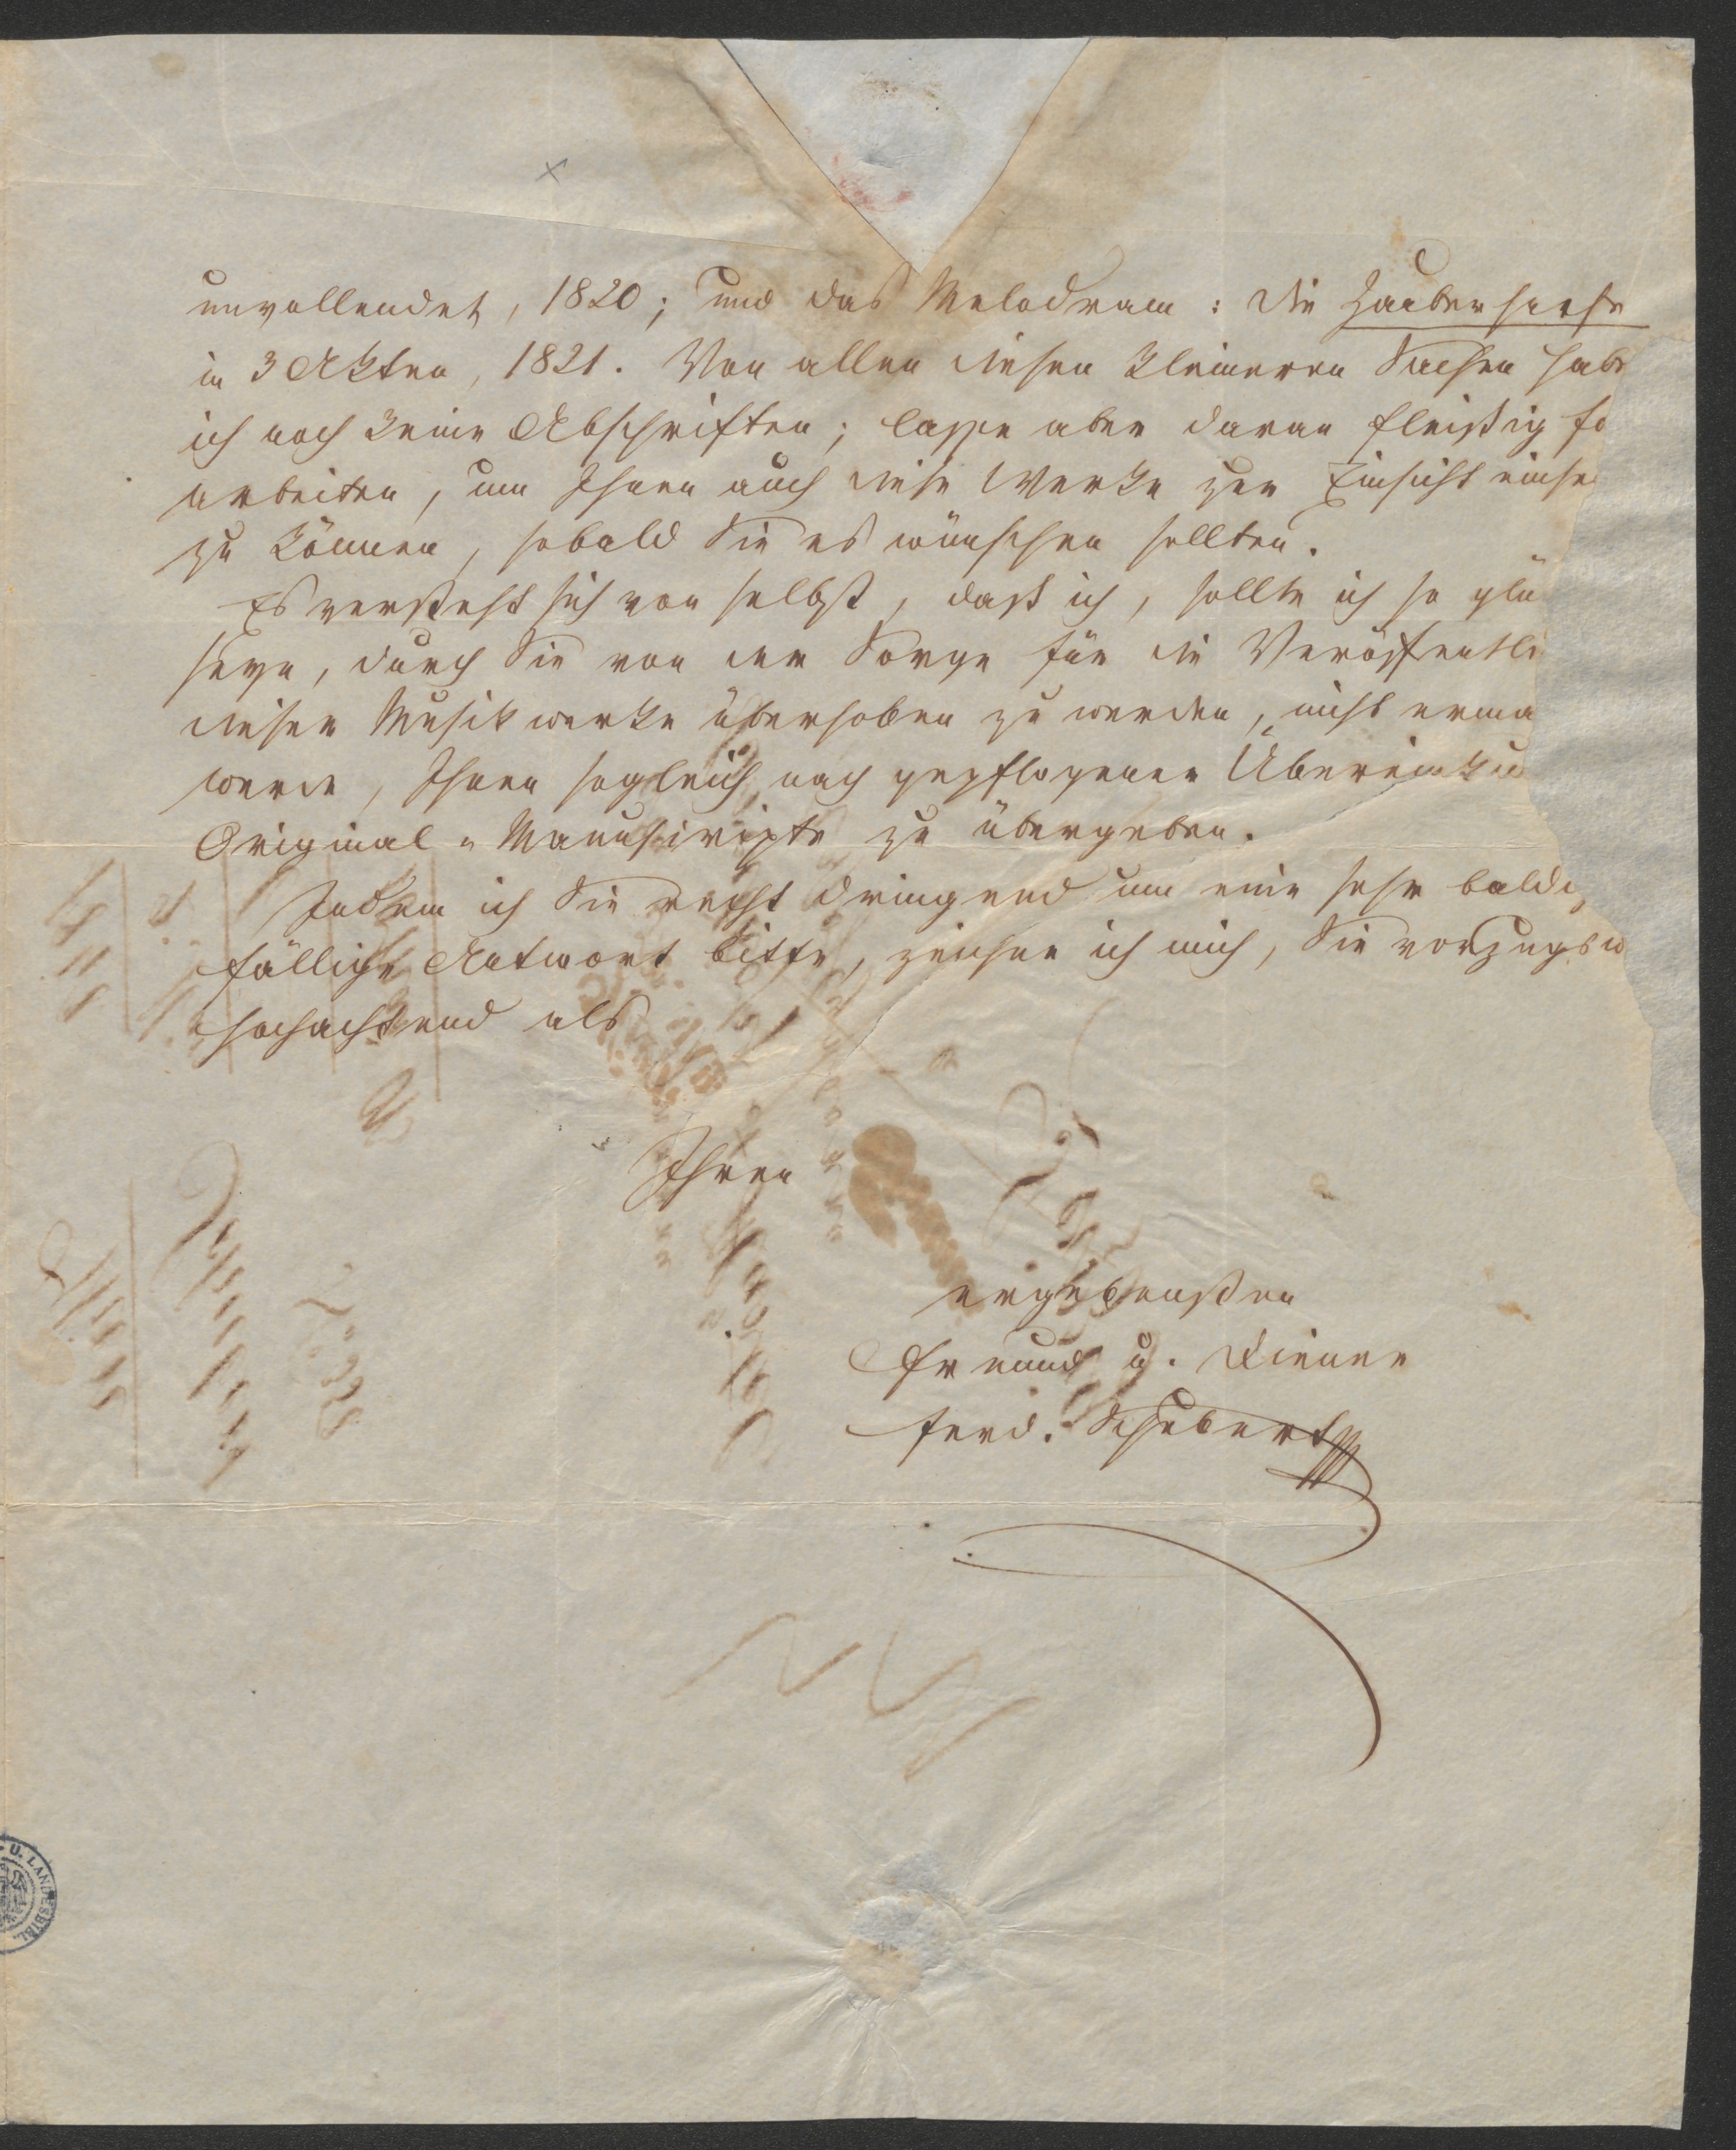 unvollendet, 1820; und das Melodram: die Zauberharfe
in 3 Akten, 1821. Von allen diesen kleineren Sachen habe
ich noch keine Abschriften; lasse aber daran fleißig fo
arbeiten, um Ihnen auch diese Werke zur Einsicht einse
zu können, sobald Sie es wünschen sollten.
Es versteht sich von selbst, daß ich, sollte ich so glü
seyn, durch Sie von der Sorge für die Veröffentli
dieser Musikwerke überhoben zu werden, nicht erma
werde, Ihnen sogleich nach gepflogener Übereinku
Original-Manuscripte zu übergeben.
Indem ich Sie recht dringend um eine sehr baldi
fällige Antwort bitte, zeichne ich mich, Sie vorzugsw
hochachtend als
Ihren
ergebensten
Freund u. Diener
Ferd. Schubert
U. LANDESBIBL.